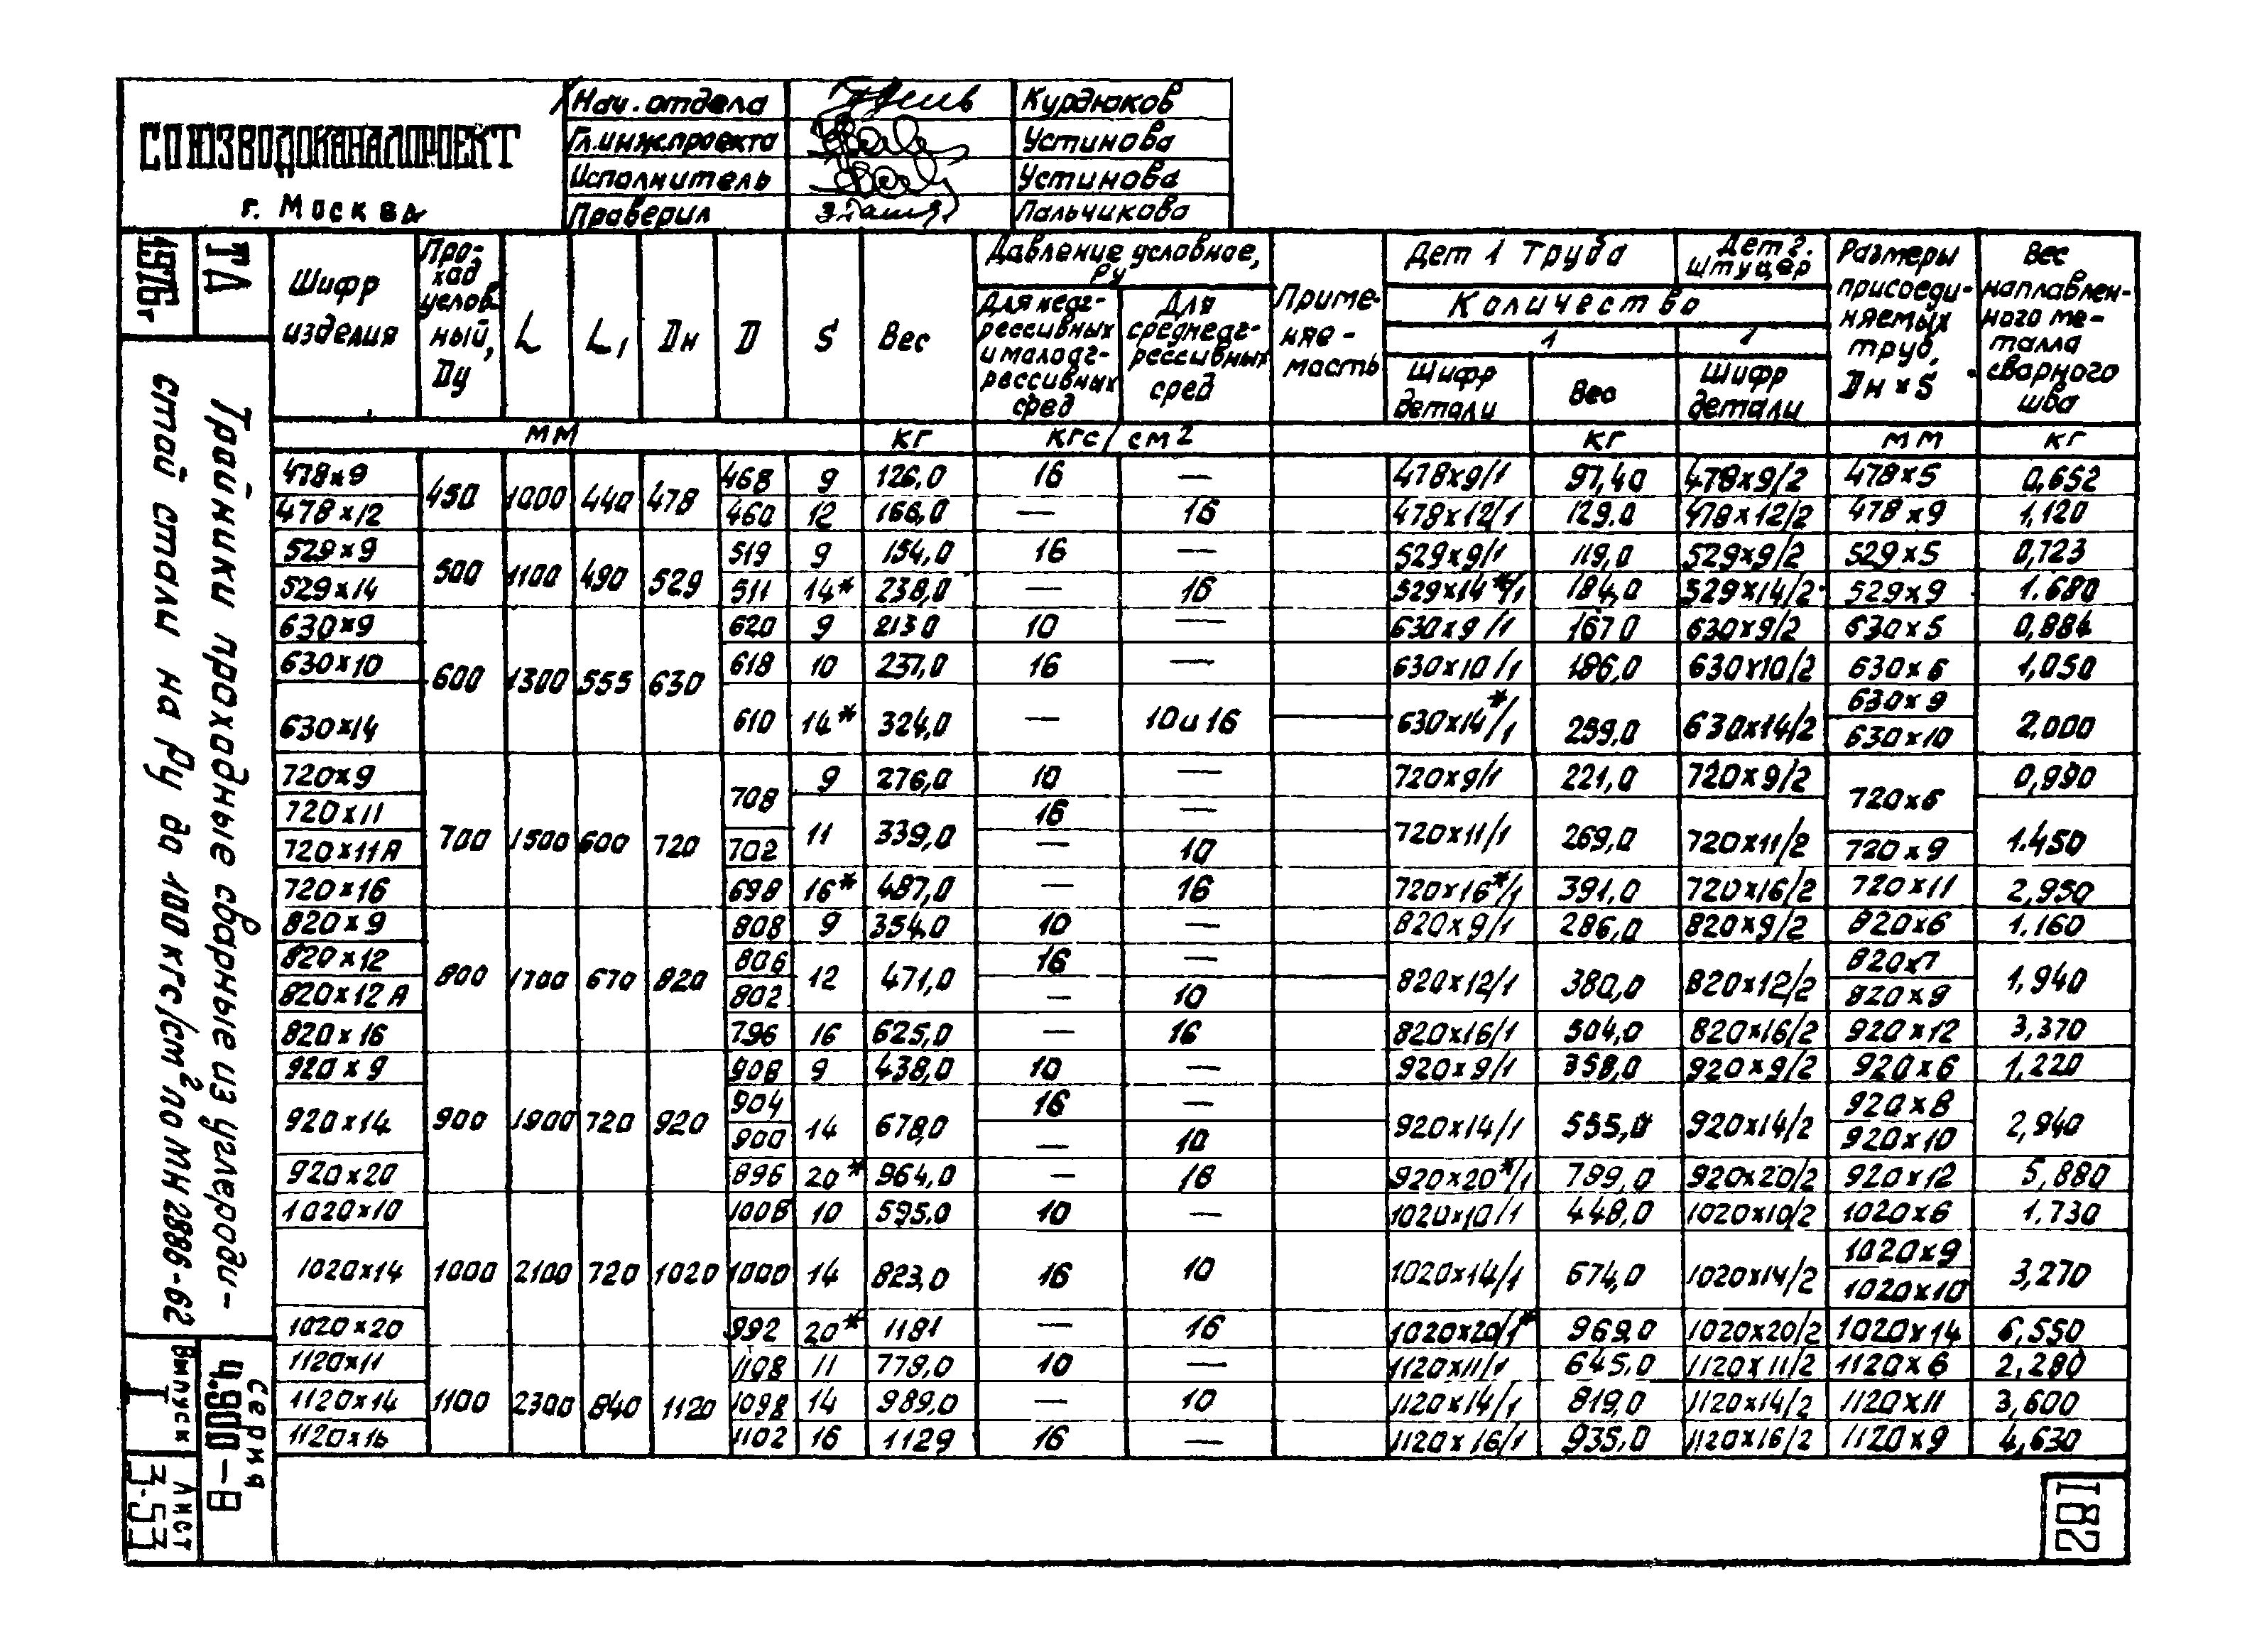 СОЮЗВОДОКАНАЛПРОЕКТ
г. Москва
Нач. отдела Курдюков
Гл.инж.проекта Устинова
Исполнитель Устинова
Проверил Пальчикова
1976г
ТД
Тройники проходные сварные из углероди-
стой стали на Ру до 100 кгс/см2 по МН 2886-62
Серия
4.900-8
Выпуск
I
Лист
3-53
Шифр изделия
Про-
ход
услов
ный,
Dу
L L1 Dн D S Вес
Давление условное,
Ру
Для неаг-
рессивных
и малоаг-
рессивных
сред
Для
среднеаг-
рессивных
сред
Приме-
няе-
мость
Дет 1 Труба
Дет 2.
штуцер
Количество
1 1
Шифр
детали
Вес
Шифр
детали
Размеры
присоеди-
няемых
труб,
Dн × S
Вес
наплавлен-
ного ме-
талла
сварного
шва
мм кг кгс/см2 кг мм кг
478×9 450 1000 440 478 468 9 126,0 16 — 478×9/1 97,40 478×9/2 478×5 0,652
478×12 460 12 166,0 — 16 478×12/1 129.0 478×12/2 478×9 1,120
529×9 500 1100 490 529 519 9 154,0 16 — 529×9/1 119,0 529×9/2 529×5 0,723
529×14 511 14* 238,0 — 16 529×14*/1 184,0 529×14/2 529×9 1.680
630×9 600 1300 555 630 620 9 213 0 10 — 630×9/1 167 0 630×9/2 630×5 0,884
630×10 618 10 237,0 16 — 630×10/1 186,0 630×10/2 630×6 1,050
630×14 610 14* 324,0 — 10 и 16 630×14*/1 259,0 630×14/2 630×9 2,000
630×10
720×9 700 1500 600 720 708 9 276,0 10 — 720×9/1 221,0 720×9/2 720×6 0,990
720×11 11 339,0 16 — 720×11/1 269,0 720×11/2 1.450
720×11А 702 — 10 720×9
720×16 698 16* 487,0 — 16 720×16*/1 391,0 720×16/2 720×11 2,950
820×9 800 1700 670 820 808 9 354,0 10 — 820×9/1 286,0 820×9/2 820×6 1.160
820×12 806 12 471,0 16 — 820×12/1 380,0 820×12/2 820×7 1,940
820×12А 802 — 10 820×9
820×16 796 16 625,0 — 16 820×16/1 504,0 820×16/2 920×12 3,370
920×9 900 1900 720 920 908 9 438,0 10 — 920×9/1 358,0 920×9/2 920×6 1,220
920×14 904 14 678,0 16 — 920×14/1 555,0 920×14/2 920×8 2,940
900 — 10 920×10
920×20 896 20* 964,0 — 16 920×20*/1 799,0 920×20/2 920×12 5,880
1020×10 1000 2100 720 1020 1008 10 595,0 10 — 1020×10/1 448,0 1020×10/2 1020×6 1,730
1020×14 1000 14 823,0 16 10 1020×14/1 674,0 1020×14/2 1020×9 3,270
1020×10
1020×20 992 20* 1181 — 16 1020×20/1* 969,0 1020×20/2 1020×14 6,550
1120×11 1100 2300 840 1120 1108 11 779,0 10 — 1120×11/1 645,0 1120×11/2 1120×6 2,280
1120×14 1098 14 989,0 — 10 1120×14/1 819,0 1120×14/2 1120×11 3,600
1120×16 1102 16 1129 16 — 1120×16/1 935,0 1120×16/2 1120×9 4,630
182